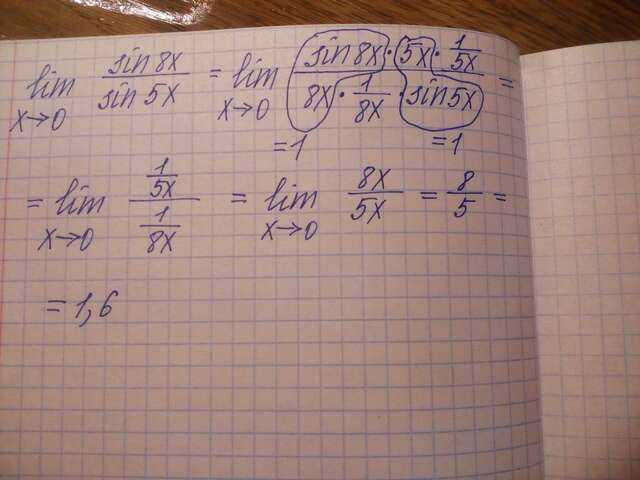 lim x→0 sin 8x / sin 5x = lim x→0 (sin 8x · 5x · 1/5x) / (8x · 1/8x · sin 5x) =
=1 =1
= lim x→0 (1/5x) / (1/8x) = lim x→0 8x/5x = 8/5 =
= 1,6